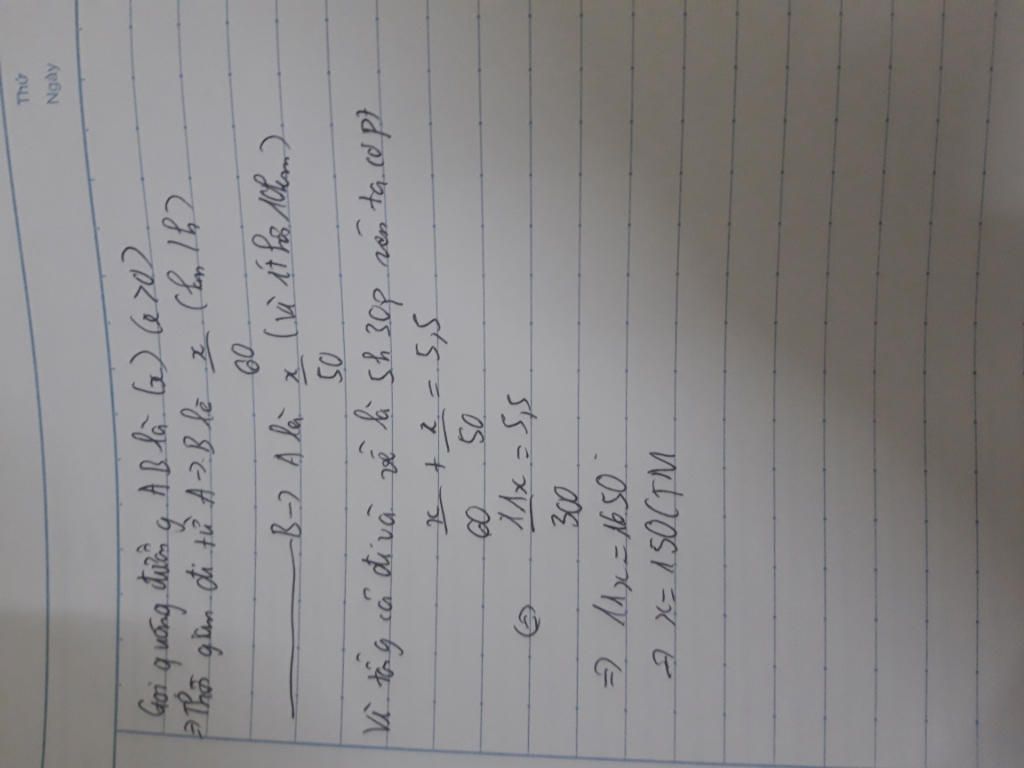 Thứ
Ngày
Gọi quãng đường AB là (x) (x>0)
=> Thời gian đi từ A -> B là x/60 (km/h)
B -> A là x/50 (vì ít hơn 10km)
Vì tổng cả đi và về là 5h 30p nên ta có pt
x/60 + x/50 = 5,5
(=) 11x/300 = 5,5
=> 11x = 1650
=> x = 150 (TM